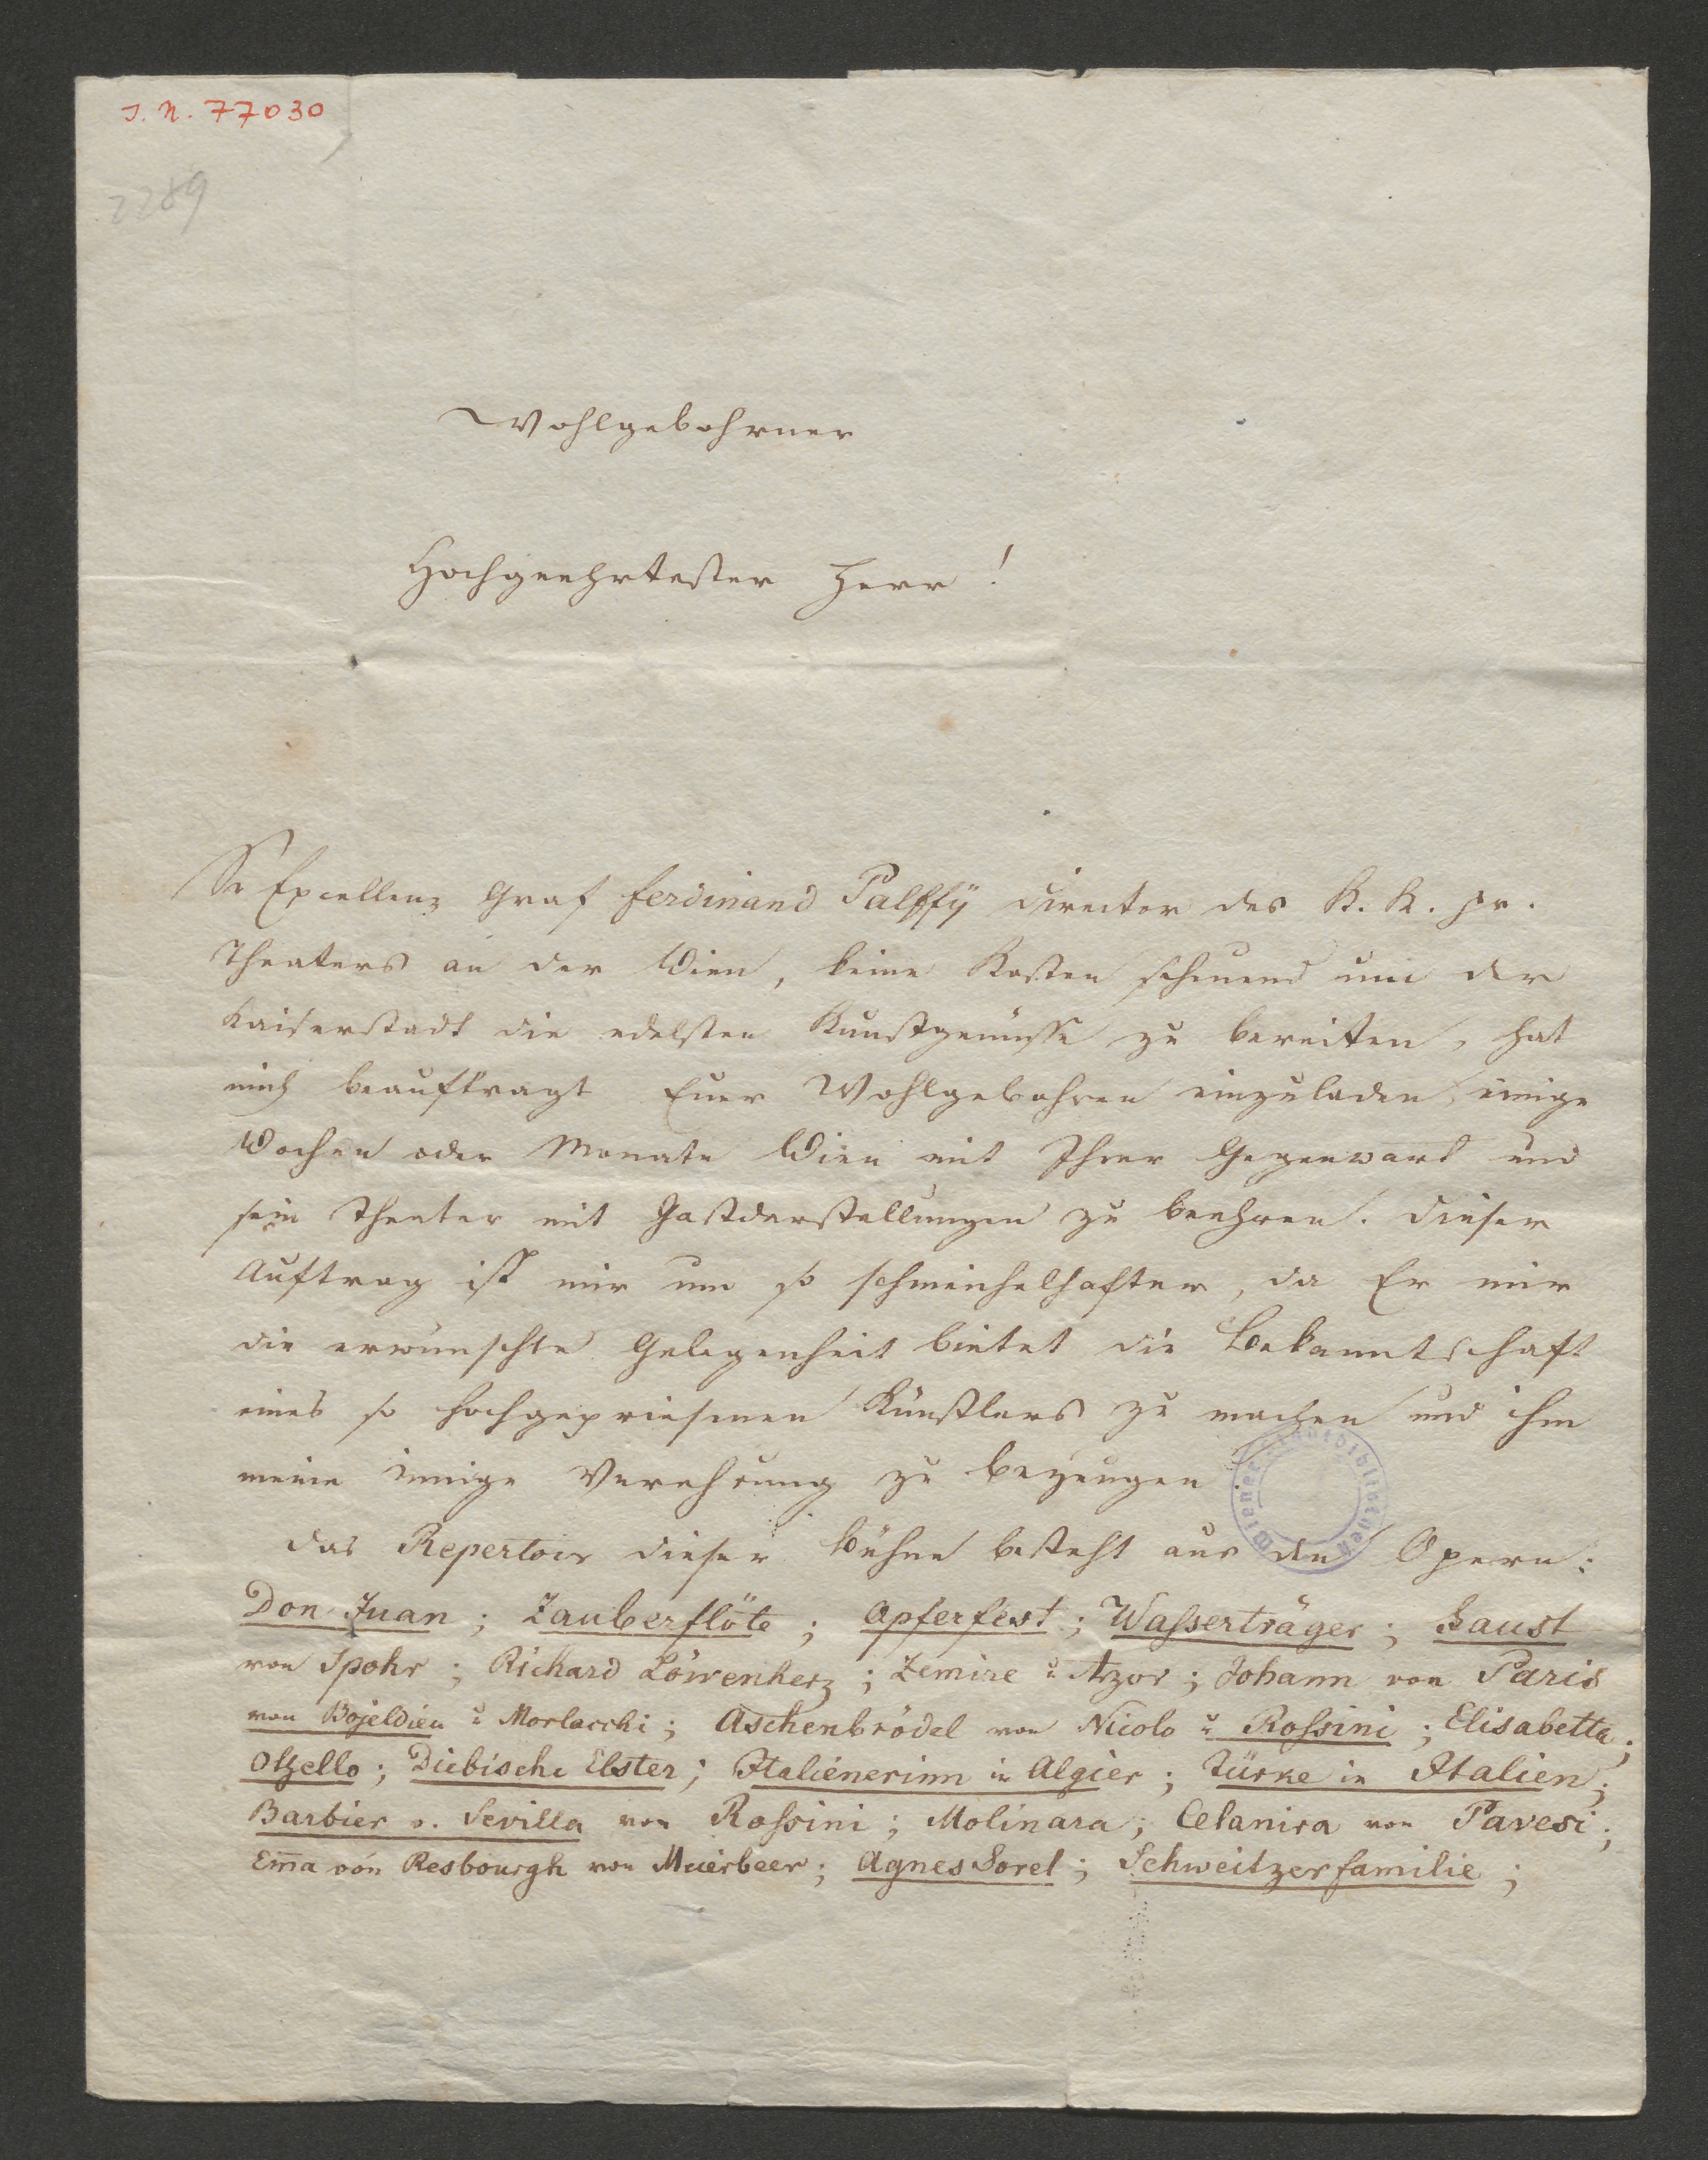 I. N. 77030
2289
Wohlgebohrner
Hochgeehrtester Herr!
Sr Excellenz Graf Ferdinand Palffÿ Director des K. K. pr.
Theaters an der Wien, keine Kosten scheuend um der
Kaiserstadt die edelsten Kunstgenüsse zu bereiten, hat
mich beauftragt Euer Wohlgebohren einzuladen einige
Wochen oder Monate Wien mit Ihrer Gegenwart und
sein Theater mit Gastdarstellungen zu beehren. Dieser
Auftrag ist mir um so schmeichelhafter, da Er mir
die erwünschte Gelegenheit bietet die Bekanntschaft
eines so hochgepriesenen Künstlers zu machen und ihm
meine innige Verehrung zu bezeugen.
Wiener Stadtbibliothek
Das Repertoir dieser Bühne besteht aus den Opern:
Don Juan; Zauberflöte; Opferfest; Waßerträger; Faust
von Spohr; Richard Löwenherz; Zemire u Azor; Johann von Paris
von Bojeldieu u Morlacchi; Aschenbrödel von Nicolo u Roßini; Elisabetta;
Othello; Diebische Elster; Italienerinn in Algier; Türke in Italien;
Barbier v. Sevilla von Roßini; Molinara; Celanira von Pavesi;
Em̅a von Resbourgh von Meierbeer; Agnes Sorel; Schweitzerfamilie;